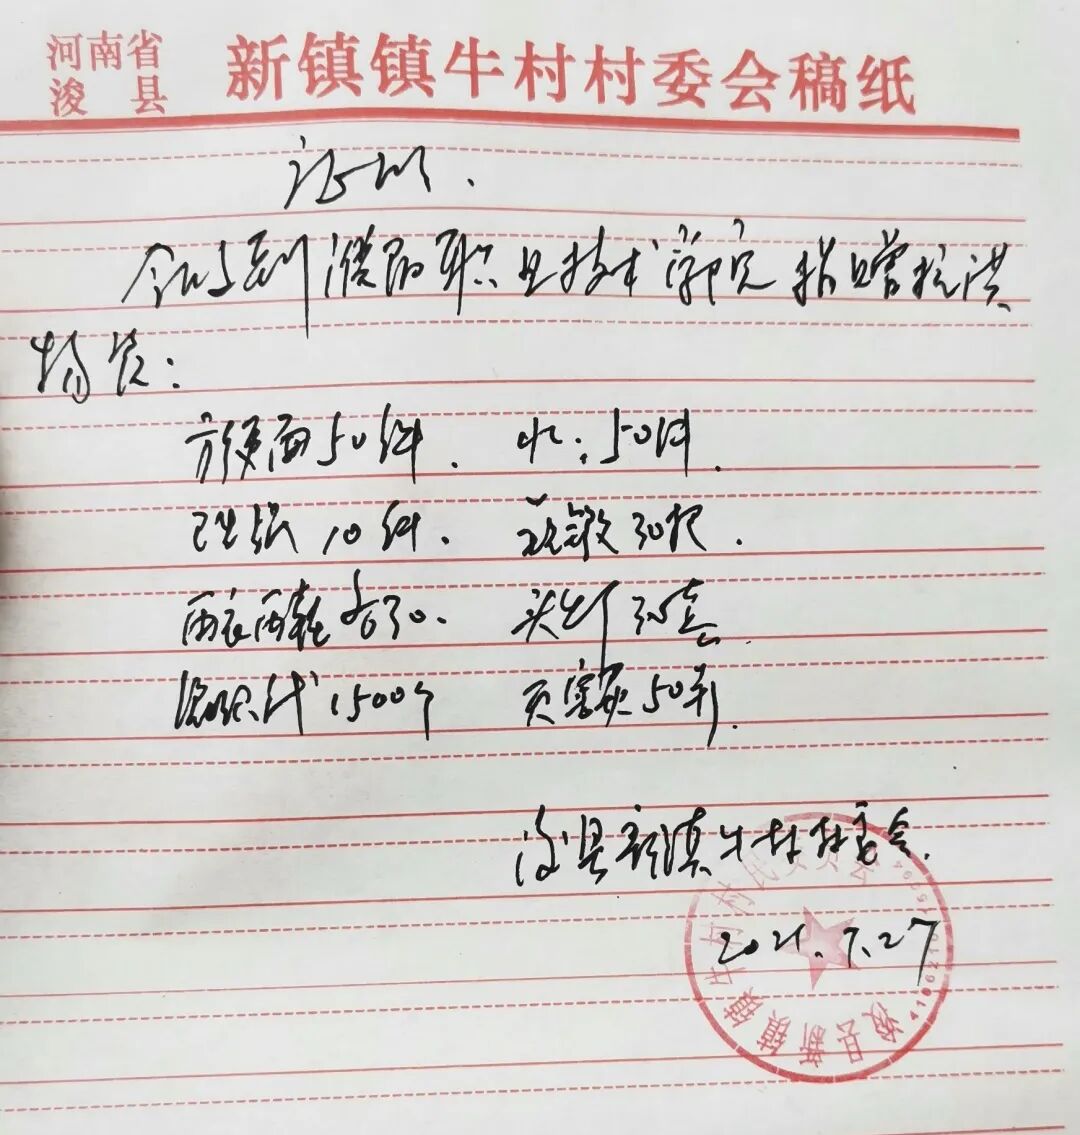 河南省
浚县
新镇镇牛村村委会稿纸
证明.
今收到濮阳职业技术学院捐赠抗洪
物资:
方便面50件. 水:50件.
卫生纸10件. 铁锨30把.
雨衣雨鞋各30. 头灯30套.
编织袋1500个 50
浚县新镇牛村村委会.
2021.7.27
浚县新镇镇牛村村民委员会